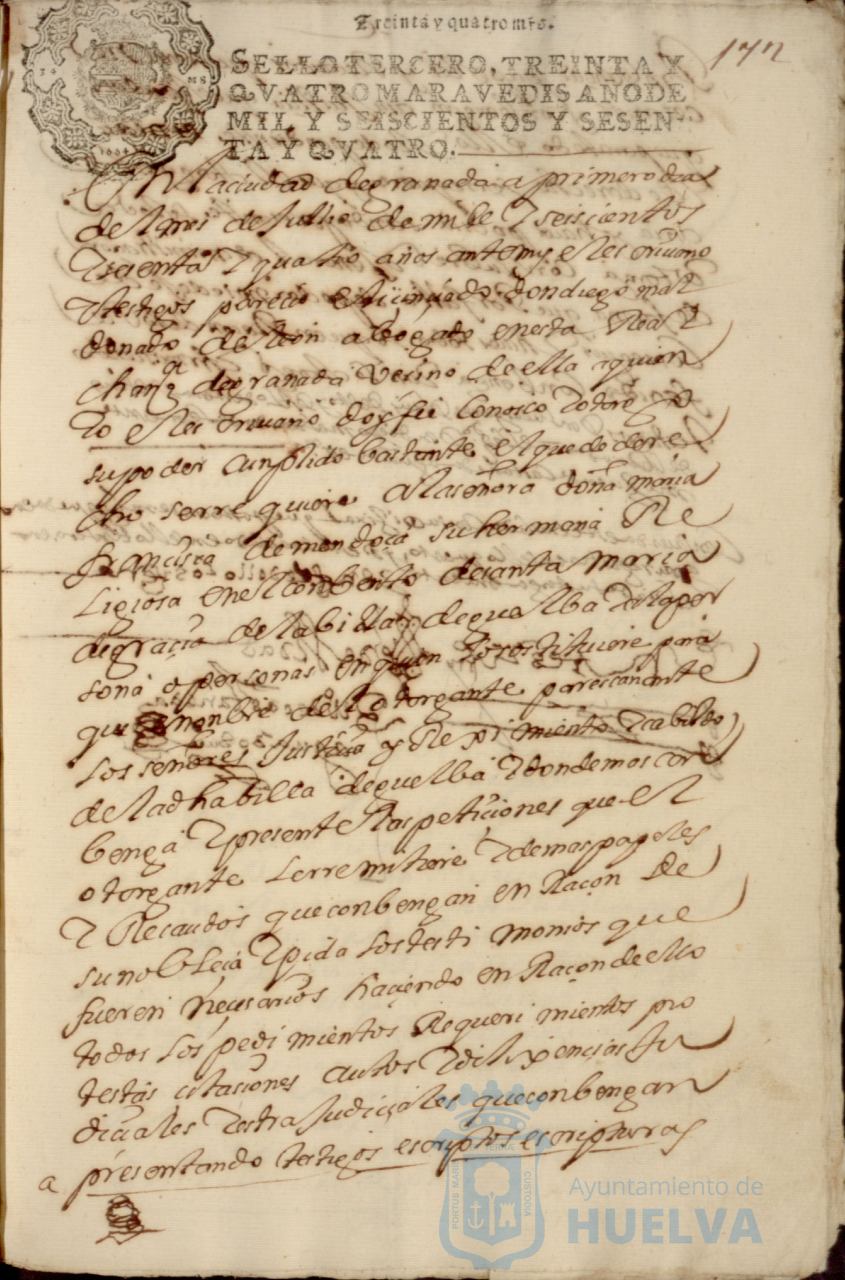 Treinta y quatro mrs.
172
SELLO TERCERO, TREINTA Y
QVATRO MARAVEDIS AÑO DE
MIL Y SEISCIENTOS Y SESEN-
TA Y QVATRO.
En la ciudad de granada a primero dia
del mes de Jullio de mile y seiscientos
y sesenta y quatro años ante my el escriuano
y testigos parecio el licenciado don diego mal
donado de leon abogado en esta Real
chanz^a de granada vecino de ella a quien
yo el escriuano doy fee conosco y otorgo
su poder cunplido bastante el que de dere
cho se rrequiere a la señora doña maria
francisca de mendoça su hermana Re
ligiosa en el conbento de santa maria
de graçia de la billa de guelba y a la per
sona o personas en quien lo sostituiere para
que en nonbre del otorgante paresca ante
los señores Justicia y Reximiento y cabildo
de la dha billa de guelba y donde mas con
benga y presente las peticiones que el
otorgante le rremitiere y demas papeles
y Recaudos que conbengan en Raçon de
su nobleça y pida los testimonios que
fueren necesarios haciendo en Raçon de ello
todos los pedimientos Requerimientos pro
testas citaciones autos y dilixencias Ju
diciales y estraJudiciales que conbengan
a presentando testigos escriptos escripturas
PORTUS MARIS
ET TERRÆ
CUSTODIA
Ayuntamiento de
HUELVA